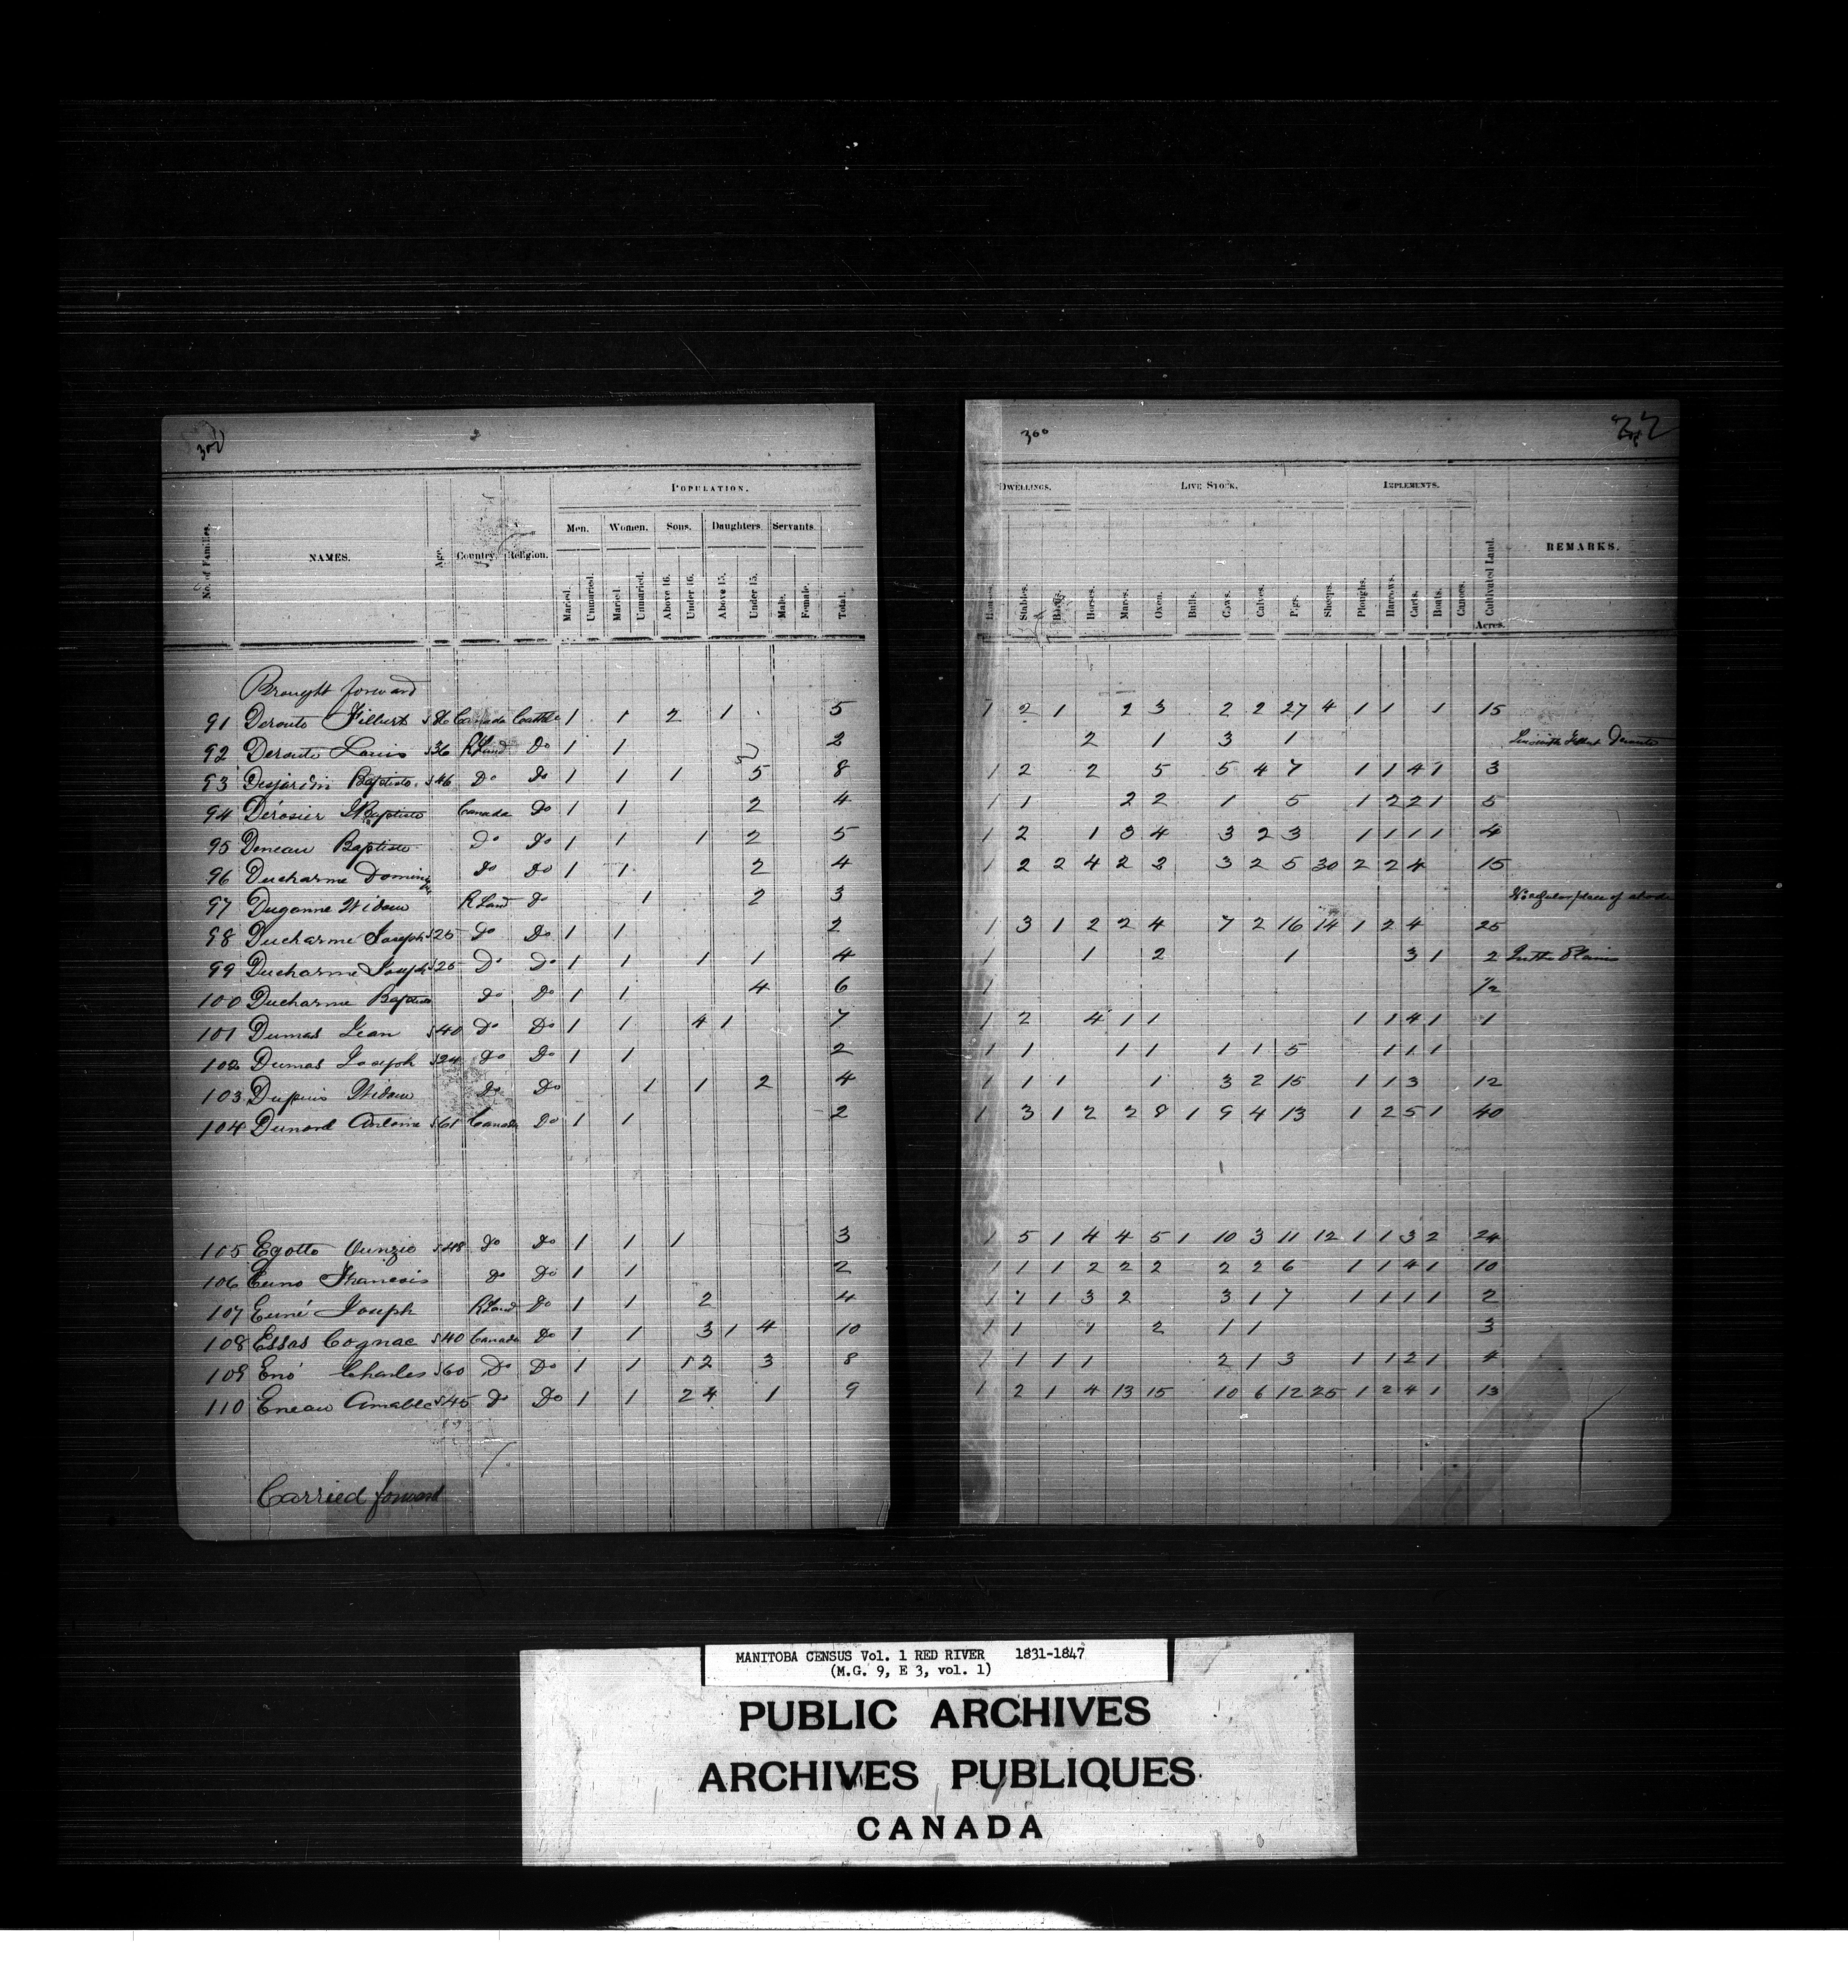 300
POPULATION.
No. of Families. NAMES. Age. Country. Religion. Men. Women. Sons. Daughters Servants
Maried. Unmaried. Maried. Unmaried. Above 16. Under 16. Above 15. Under 15. Male. Female. Total.
Brought forward
91 Deroute Filbert 86 Canada 1 1 2 1 5
92 Deroute Louis 36 R Land Do 1 1 2
93 Desjardin Baptiste 46 Do Do 1 1 1 5 8
94 Dérosier Baptiste Canada Do 1 1 2 4
95 Deneau Baptiste Do Do 1 1 1 2 5
96 Ducharme Do Do 1 1 2 4
97 Widow R Land Do 1 2 3
98 Ducharme Joseph 25 Do Do 1 1 2
99 Ducharme Joseph 25 Do Do 1 1 1 1 4
100 Ducharme Baptiste Do Do 1 1 4 6
101 Dumas Jean 40 Do Do 1 1 4 1 7
102 Dumas Joseph 24 Do Do 1 1 2
103 Dupuis Widow Do Do 1 1 2 4
104 Antoine 61 Canada Do 1 1 2
105 Egotte 48 Do Do 1 1 1 3
106 Euno Francois Do Do 1 1 2
107 Euné Joseph R Land Do 1 1 2 4
108 Essas Cognac 40 Canada Do 1 1 3 1 4 10
109 Eno Charles 60 Do Do 1 1 1 2 3 8
110 Eneau Amable 45 Do Do 1 1 2 4 1 9
Carried forward
300
DWELLINGS. LIVE STOCK. IMPLEMENTS.
Houses. Stables. Barns. Horses. Mares. Oxen. Bulls. Cows. Calves. Pigs. Sheeps. Ploughs. Harrows. Carts. Boats. Canoes. Cultivated Land. REMARKS.
Acres.
1 2 1 2 3 2 2 27 4 1 1 1 15
2 1 3 1 Deroute
1 2 2 5 5 4 7 1 1 4 1 3
1 1 2 2 1 5 1 2 2 1 5
1 2 1 3 4 3 2 3 1 1 1 1 4
1 2 2 4 2 2 3 2 5 30 2 2 4 15
No regular place of abode
1 3 1 2 2 4 7 2 16 14 1 2 4 25
1 1 2 1 3 1 2 In the Plains
1 1/2
1 2 4 1 1 1 1 4 1 1
1 1 1 1 1 1 5 1 1 1
1 1 1 1 3 2 15 1 1 3 12
1 3 1 2 2 8 1 9 4 13 1 2 5 1 40
1 5 1 4 4 5 1 10 3 11 12 1 1 3 2 24
1 1 1 2 2 2 2 2 6 1 1 4 1 10
1 1 1 3 2 3 1 7 1 1 1 1 2
1 1 1 2 1 1 3
1 1 1 1 2 1 3 1 1 2 1 4
1 2 1 4 13 15 10 6 12 25 1 2 4 1 13
MANITOBA CENSUS Vol. 1 RED RIVER 1831-1847
(M.G. 9, E 3, vol. 1)
PUBLIC ARCHIVES
ARCHIVES PUBLIQUES
CANADA